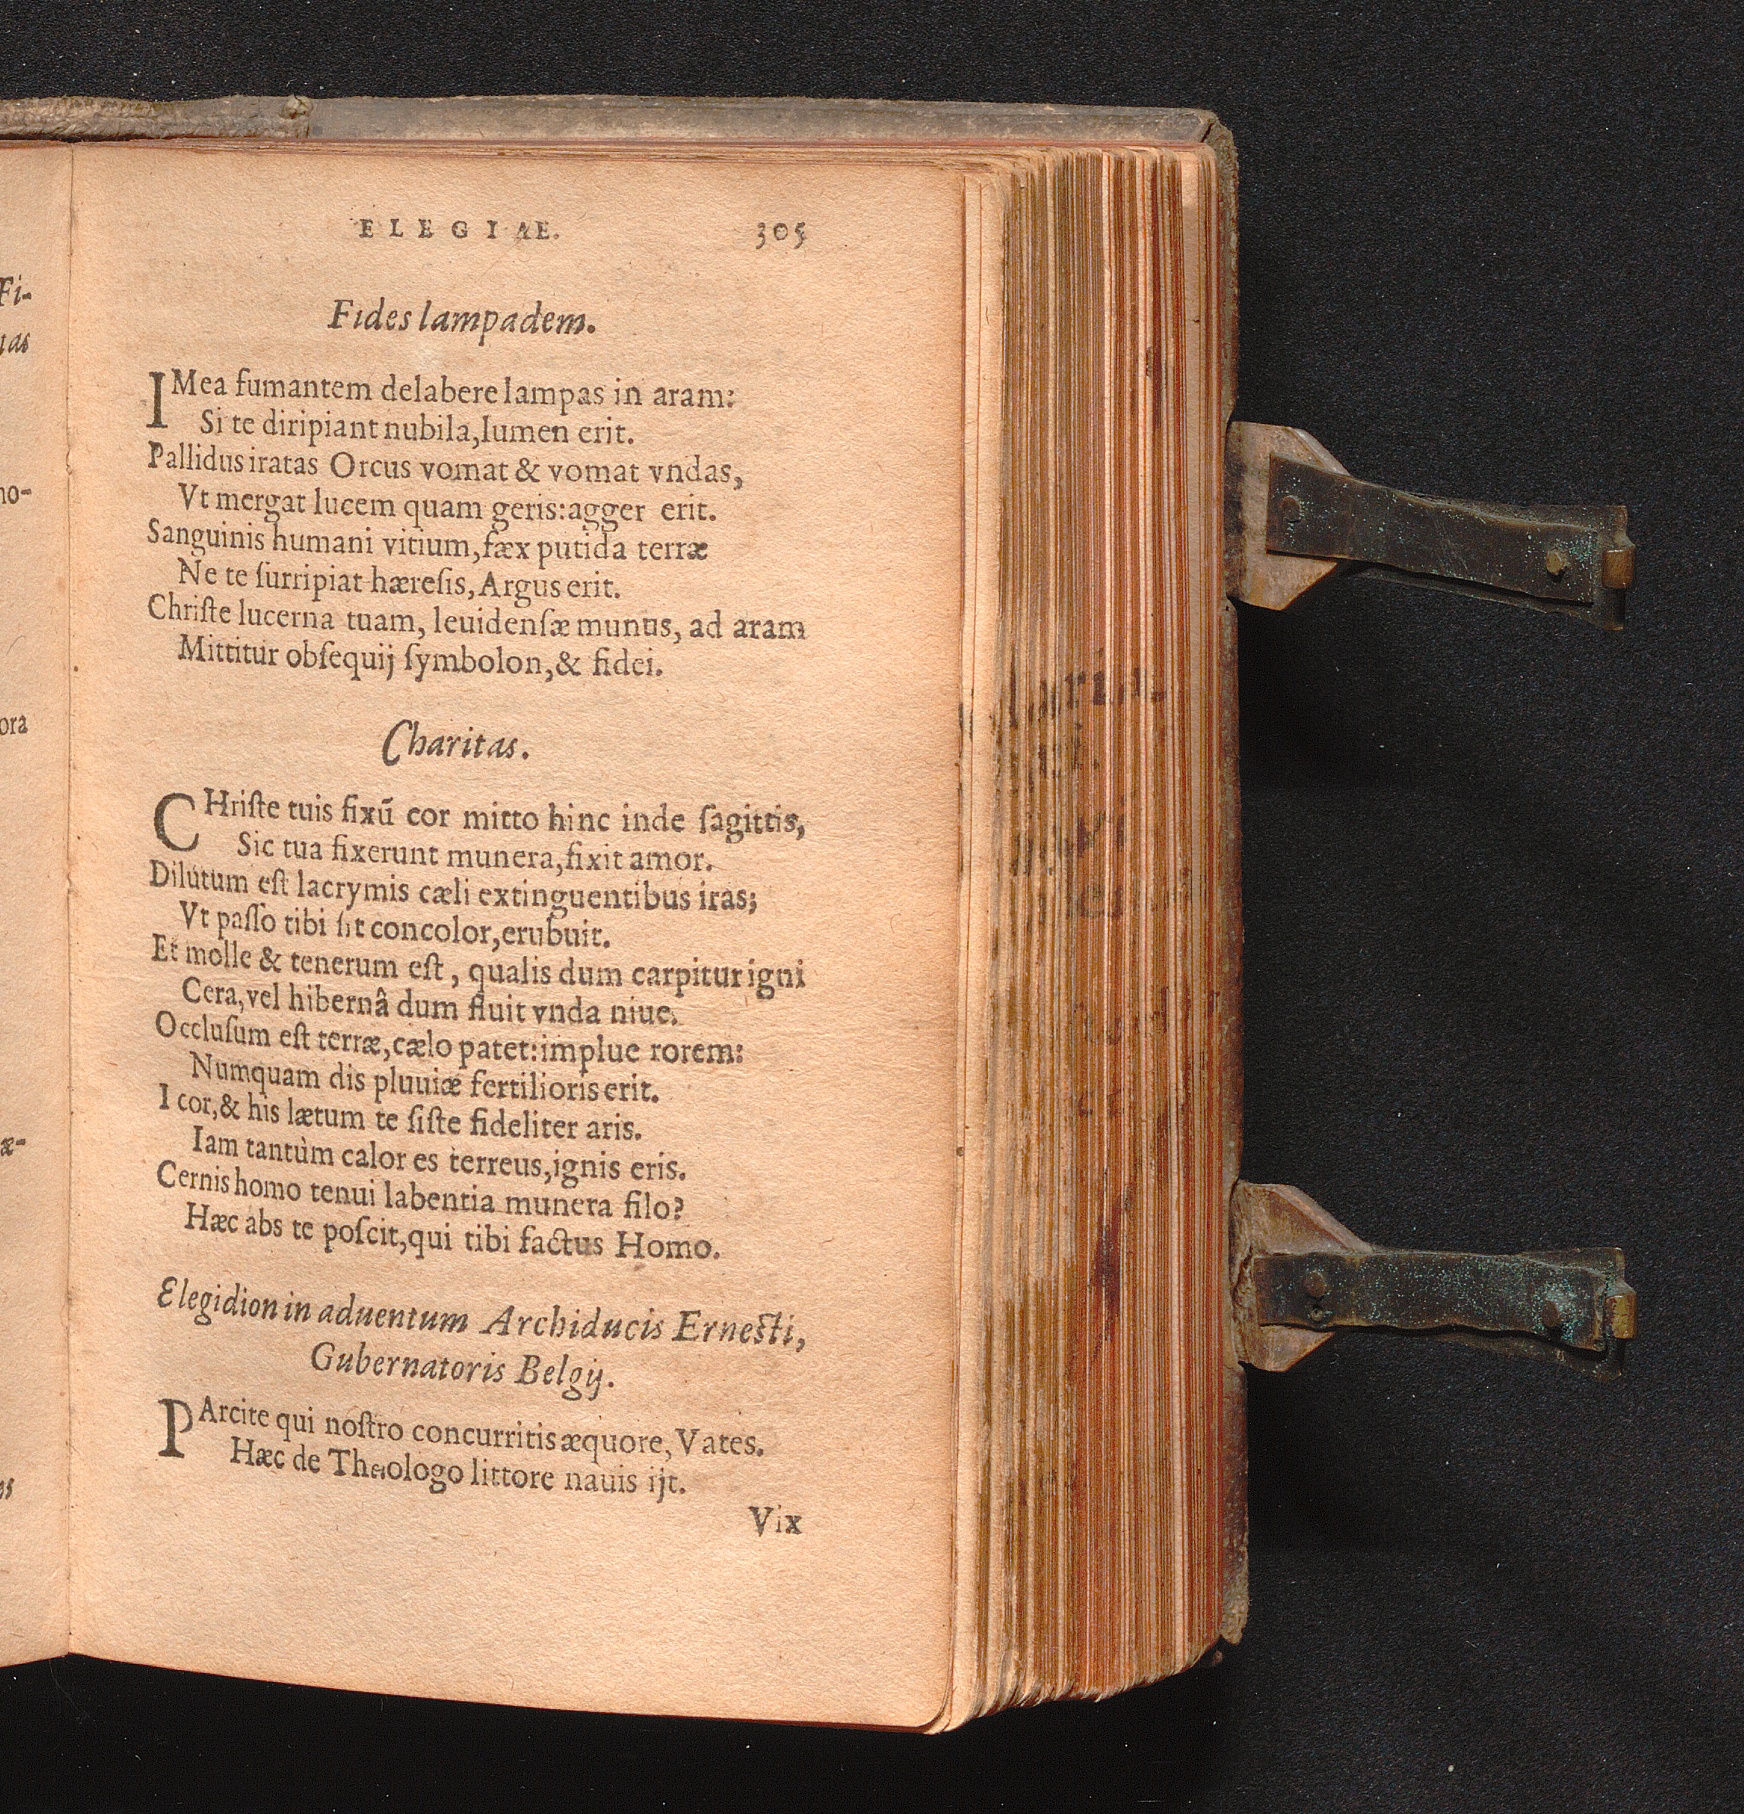 ELEGIAE. 305
Fides lampadem.
IMea fumantem delabere lampas in aram:
Si te diripiant nubila, lumen erit.
Pallidus iratas Orcus vomat & vomat vndas,
Vt mergat lucem quam geris: agger erit.
Sanguinis humani vitium, fæx putida terræ
Ne te ſurripiat hæreſis, Argus erit.
Chriſte lucerna tuam, leuidenſæ munus, ad aram
Mittitur obſequij ſymbolon, & fidei.
Charitas.
CHriſte tuis fixū cor mitto hinc inde ſagittis,
Sic tua fixerunt munera, fixit amor.
Dilutum eſt lacrymis cæli extinguentibus iras;
Vt paſſo tibi ſit concolor, erubuit.
Et molle & tenerum eſt, qualis dum carpitur igni
Cera, vel hibernâ dum fluit vnda niue.
Occluſum eſt terræ, cælo patet: implue rorem:
Numquam dis pluuiæ fertilioris erit.
I cor, & his lætum te ſiſte fideliter aris.
Iam tantùm calor es terreus, ignis eris.
Cernis homo tenui labentia munera filo?
Hæc abs te poſcit, qui tibi factus Homo.
Elegidion in aduentum Archiducis Erneſti,
Gubernatoris Belgij.
PArcite qui noſtro concurritis æquore, Vates.
Hæc de Theologo littore nauis ijt.
Vix
Fi-
no-
ora
æ-